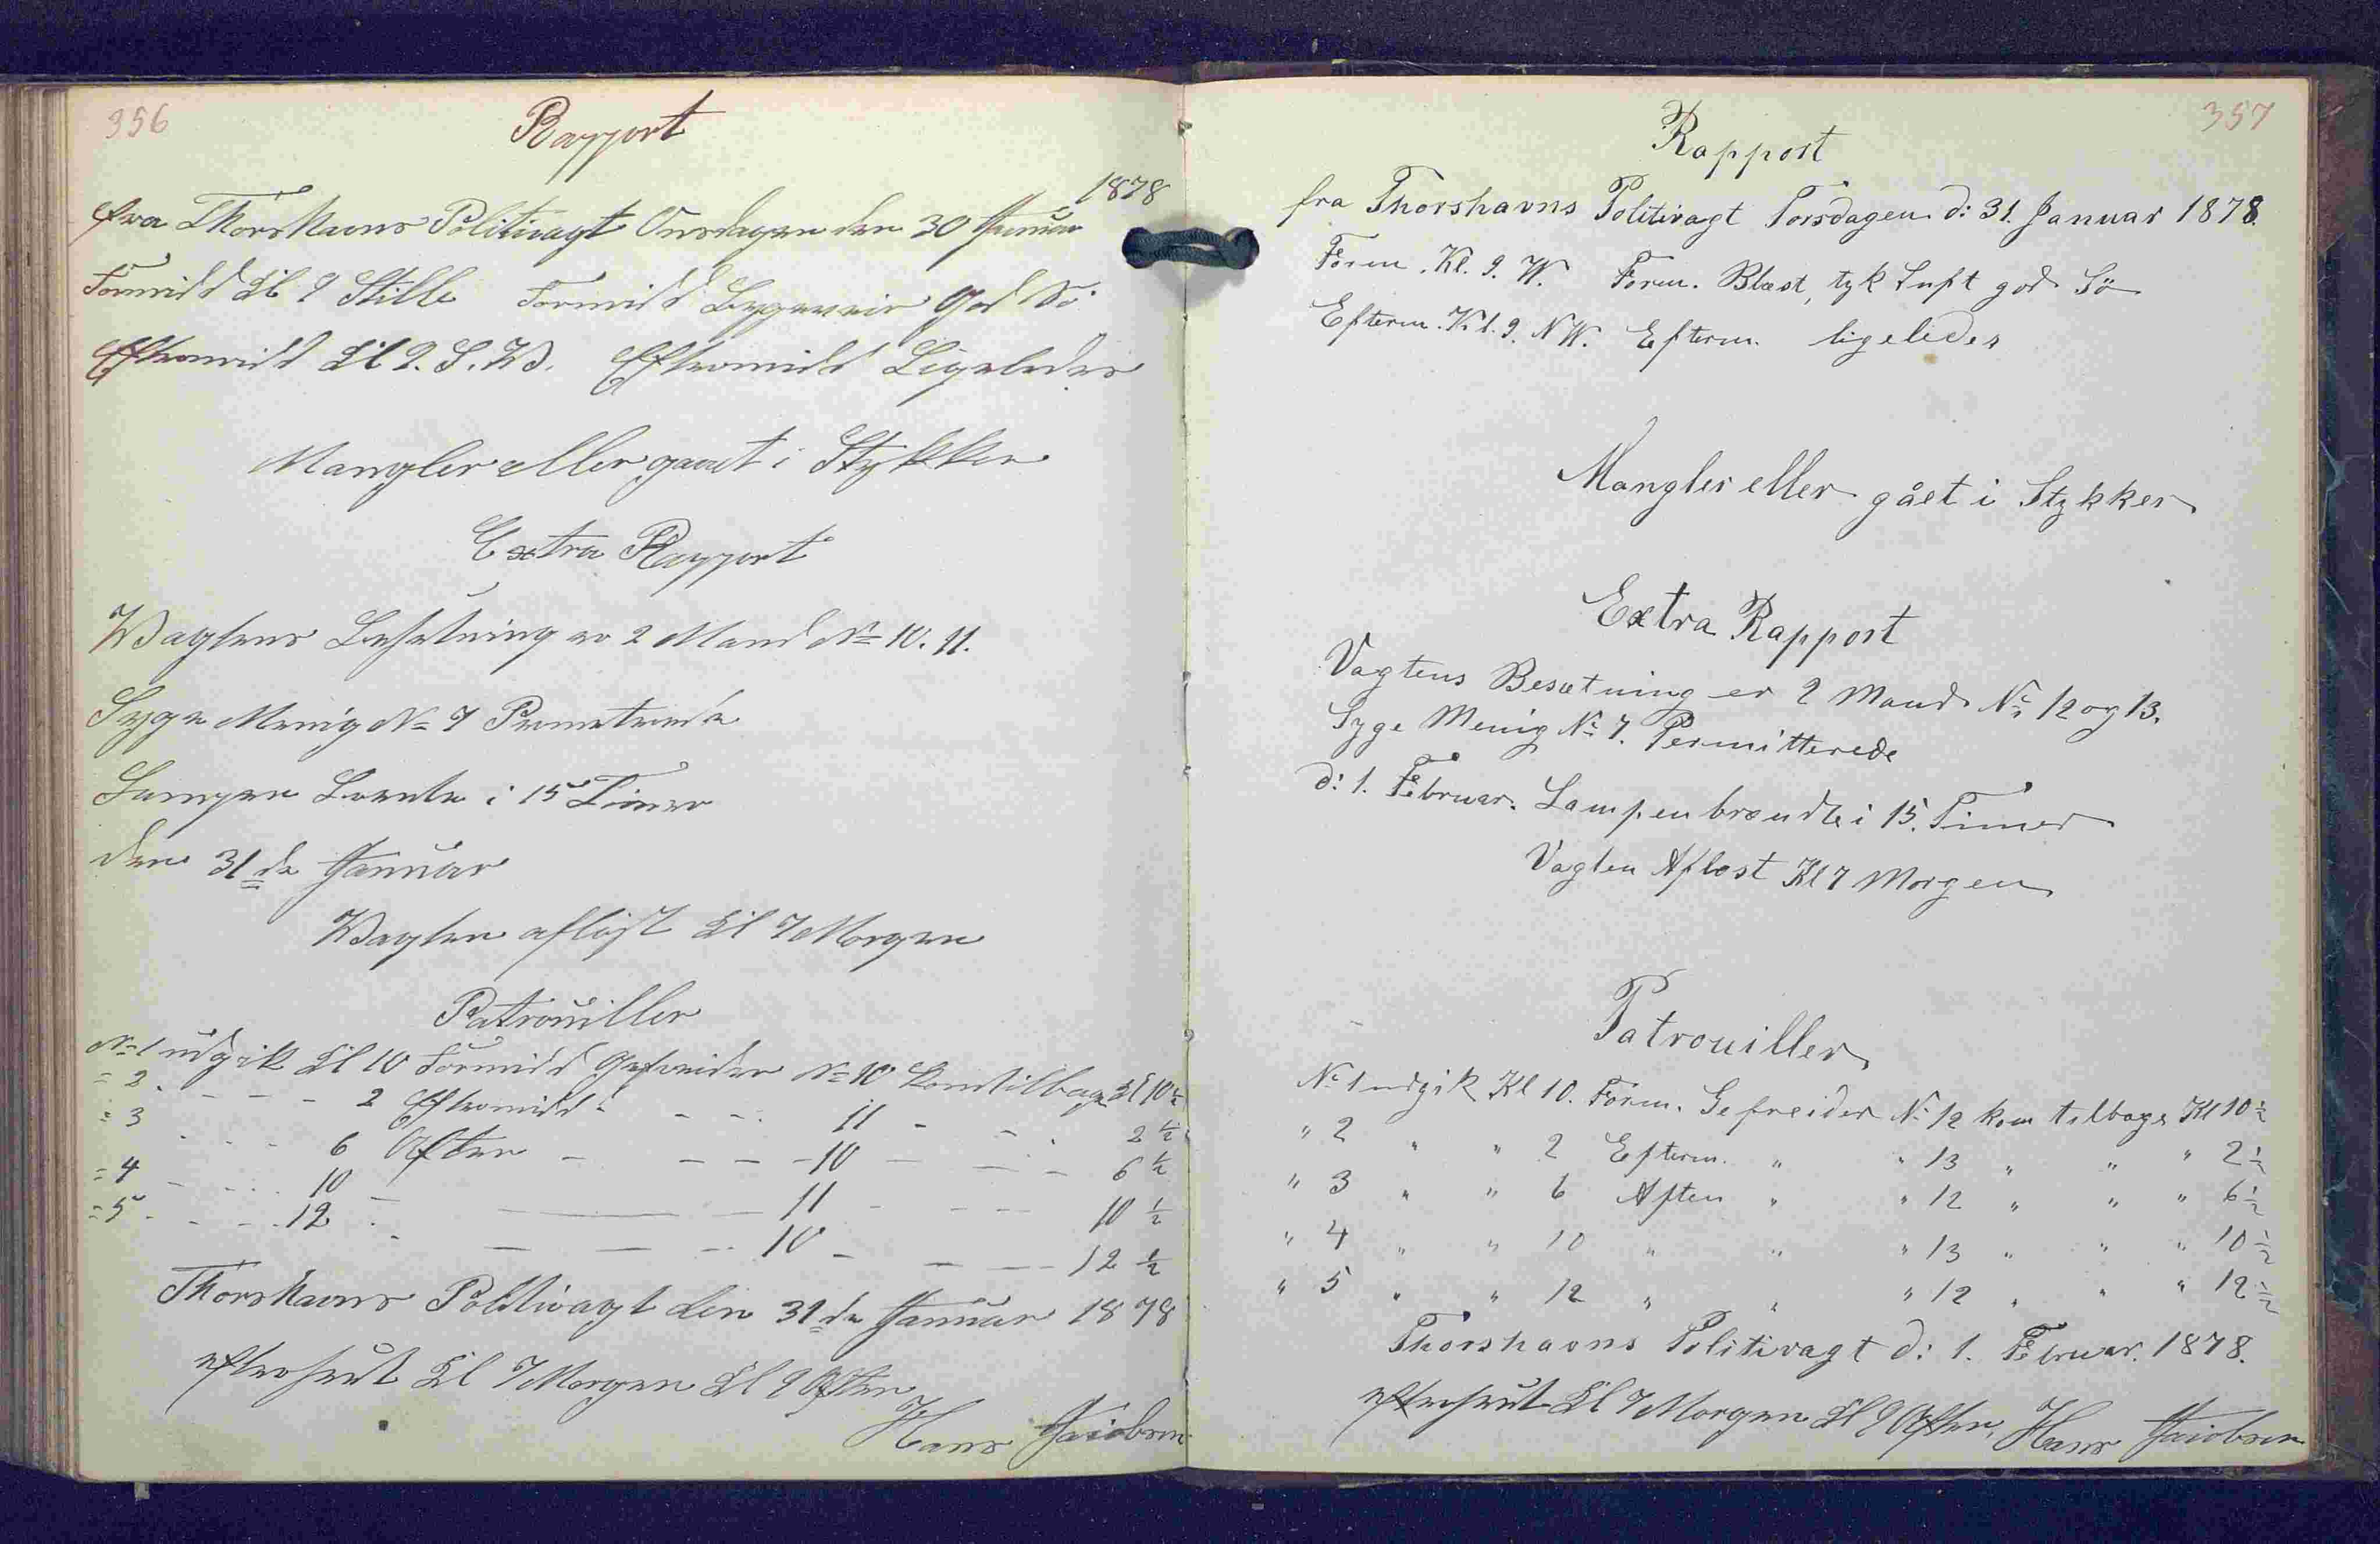 356
Rapport
1878
fra Thorshavns Politivagt Onsdagen den 30 Januar
Formidd Kl 9 Stille Formidd Bygeveir God Sö
Eftermidd Kl 9. S.W. Eftermidd Ligeledes
Mangler eller gaaet i Stykker
Extra Rapport
Wagtens Besetning er 2 Mand No 10. 11.
Syge Menig No 7
Lampen Brente i 15 Timer
den 31de Januar
Wagten aflöst Kl 7 Morgen
Patrouiller
No 1 udgik Kl 10 Formidd Gefreider No 10 kom tilbage Kl 10 1/2
= 2 - - - - 2 Eftermidd - - - 11 - - - 2 1/2
= 3 - - - 6 Aften - - - - 10 - - - 6 1/2
= 4 - - - 10 - - - 11 - - - 10 1/2
= 5 - - - 12 - - - - 10 - - - 12 1/2
Thorshavns Politivagt den 31de Januar 1878
efterseet Kl 7 Morgen Kl 9 Aften
Hans Jacobsen
357
Rapport
fra Thorshavns Politivagt Torsdagen d: 31. Januar 1878.
Form. Kl. 9. W. Form. Blæst, tyk Luft god Sö
Efterm. Kl. 9. NW. Efterm. ligeledes
Mangler eller gået i Stykker
Extra Rapport
Vagtens Besætning er 2 Mand No 12 og 13.
Syge Menig No 7. Permitterede
d: 1. Februar. Lampen brændte i 15. Timer
Vagten Aflöst Kl 7 Morgen
Patrouiller
No 1 udgik Kl 10. Form. Gefreider No 12 kom tilbage Kl 10 1/2
" 2 " " 2 Efterm. " " 13 " " " 2 1/2
" 3 " " 6 Aften " " 12 " " " 6 1/2
" 4 " " 10 " " " 13 " " " 10 1/2
" 5 " " 12 " " " 12 " " " 12 1/2
Thorshavns Politivagt d: 1. Februar. 1878.
efterseet Kl 7 Morgen Kl 9 Aften, Hans Jacobsen